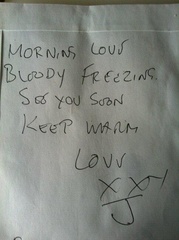 MORNING LOUV
BLOODY FREEZING.
SEE YOU SOON
KEEP WARM
LOVV
X X
J